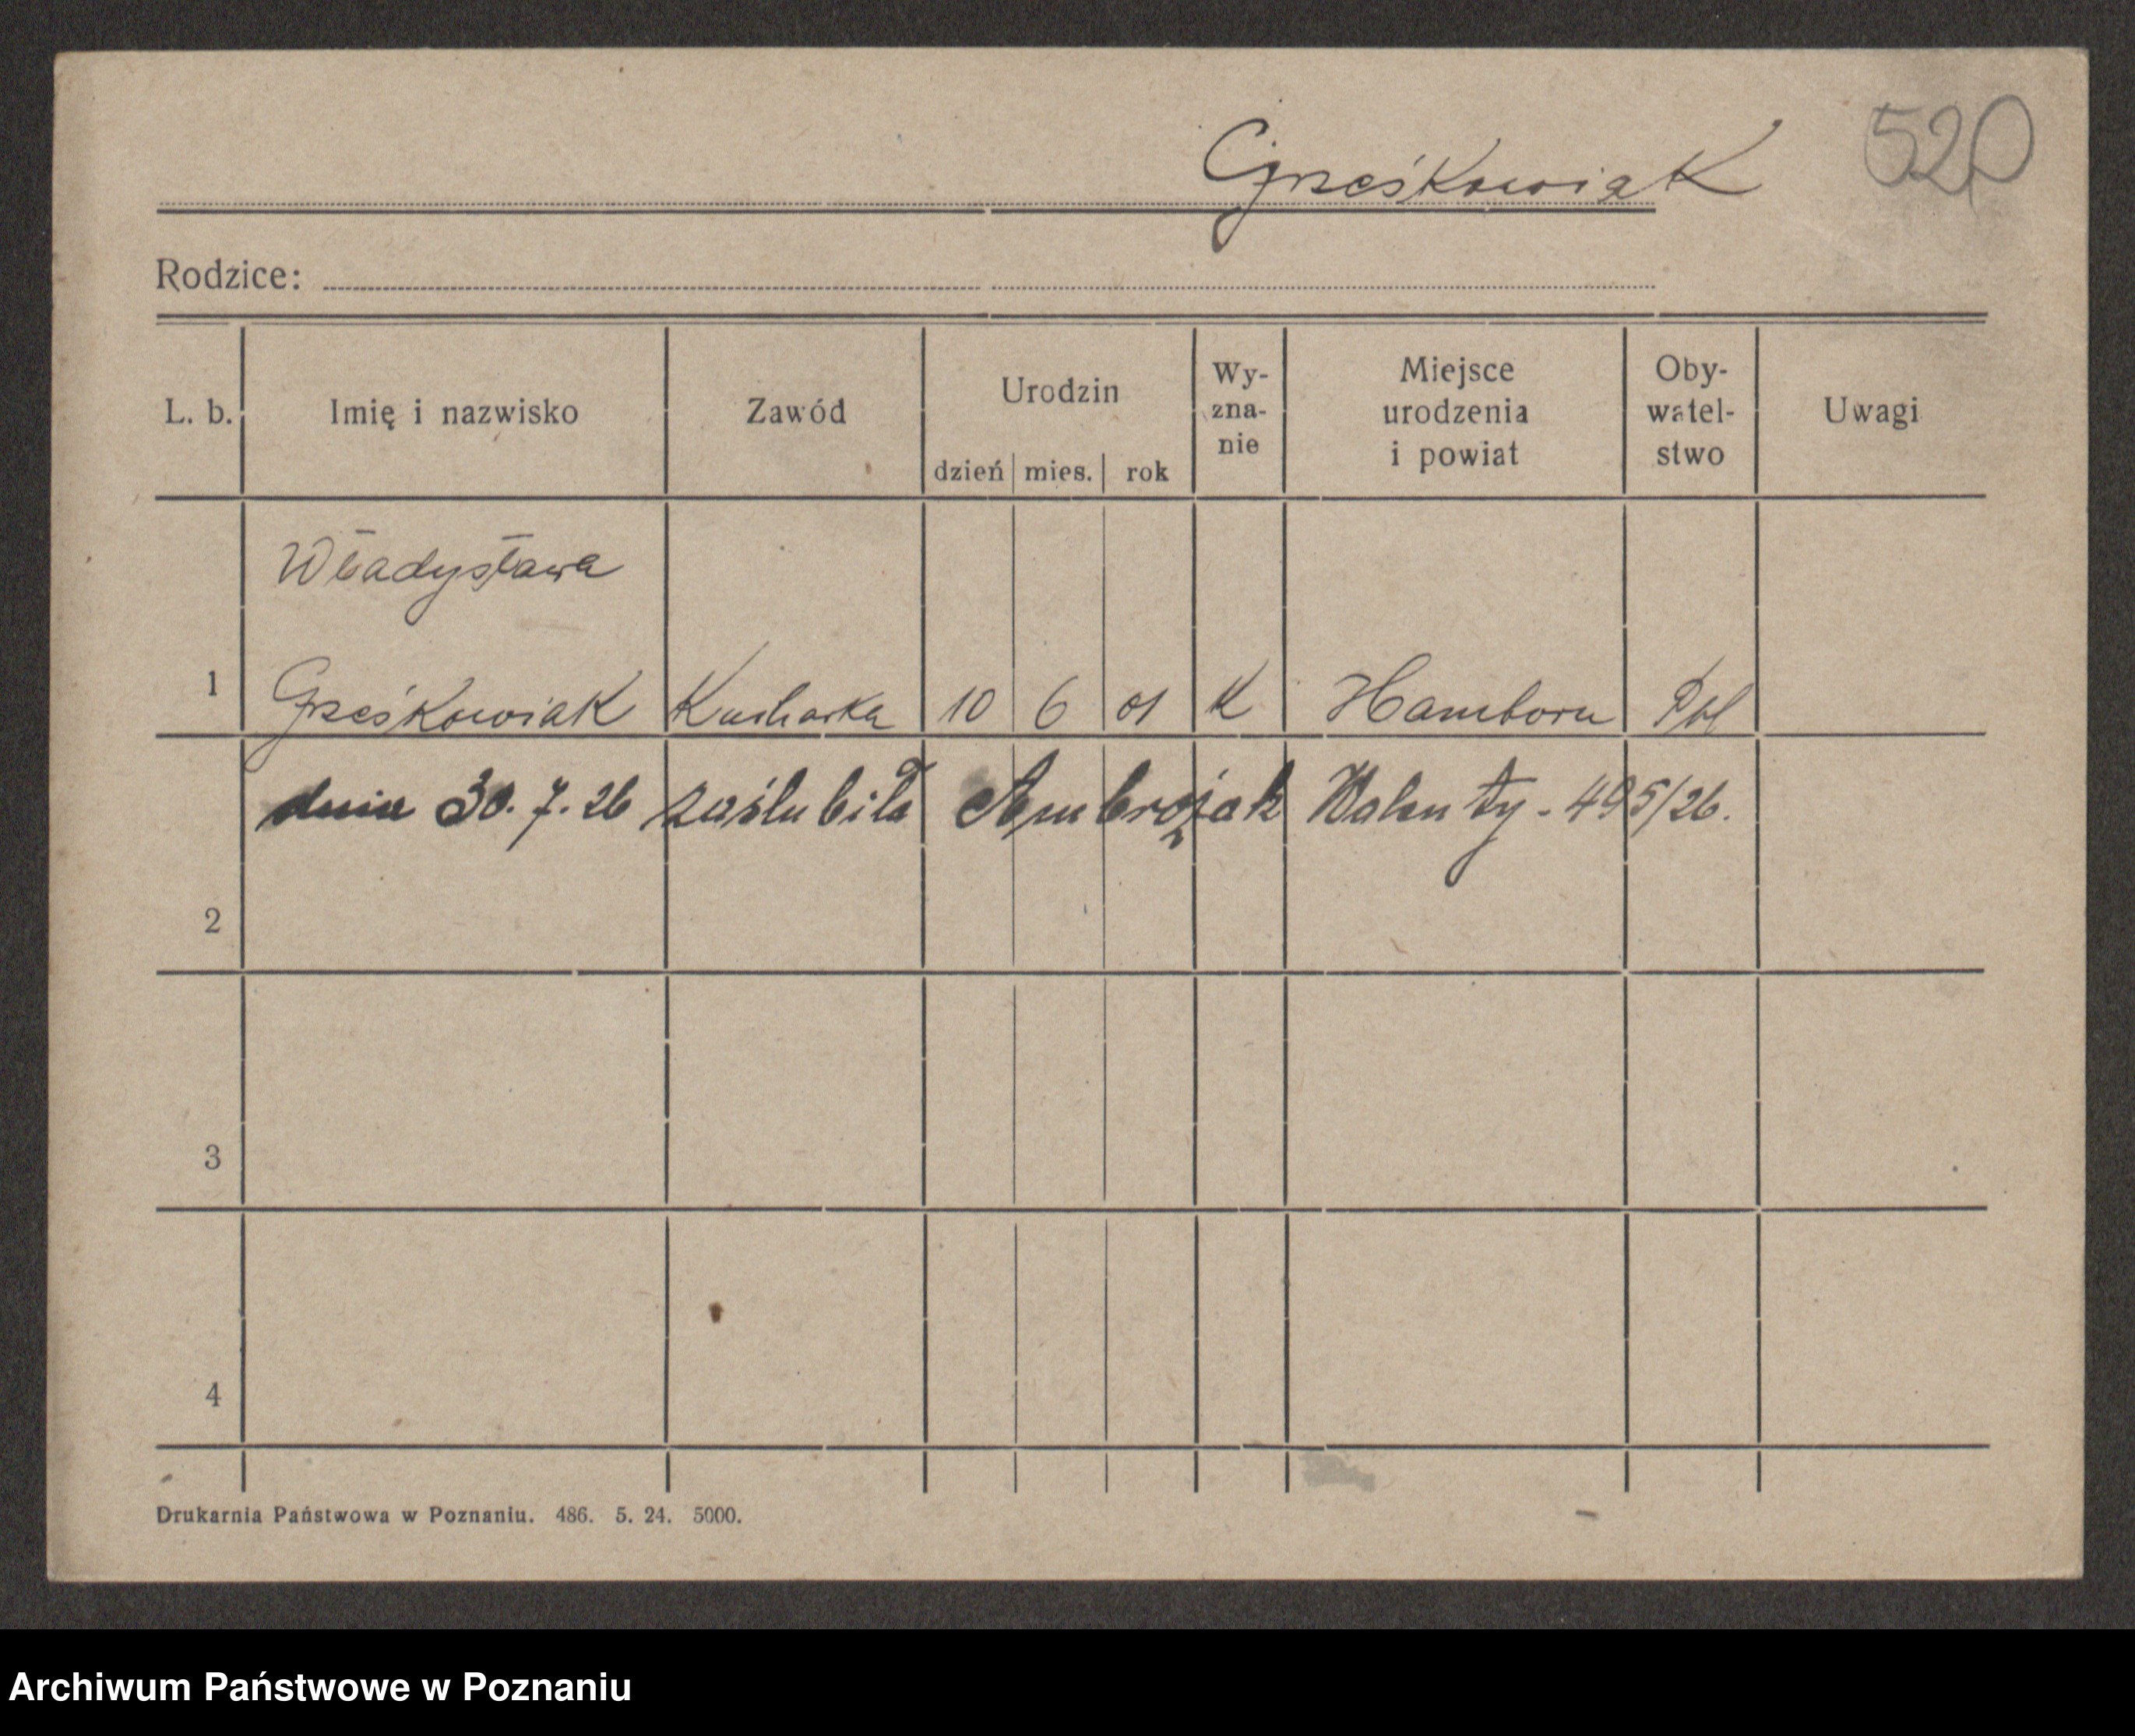 Grześkowiak 520
Rodzice:
L. b. Imię i nazwisko Zawód Urodzin dzień mies. rok Wy-zna-nie Miejsce urodzenia i powiat Oby-watel-stwo Uwagi
Władysława
1 Grześkowiak Kucharka 10 6 01 K Hamborn Pol
dnia 30. 7. 26 zaślubiła Ambrożak Walenty - 495/26.
2
3
4
Drukarnia Państwowa w Poznaniu. 486. 5. 24. 5000.
Archiwum Państwowe w Poznaniu